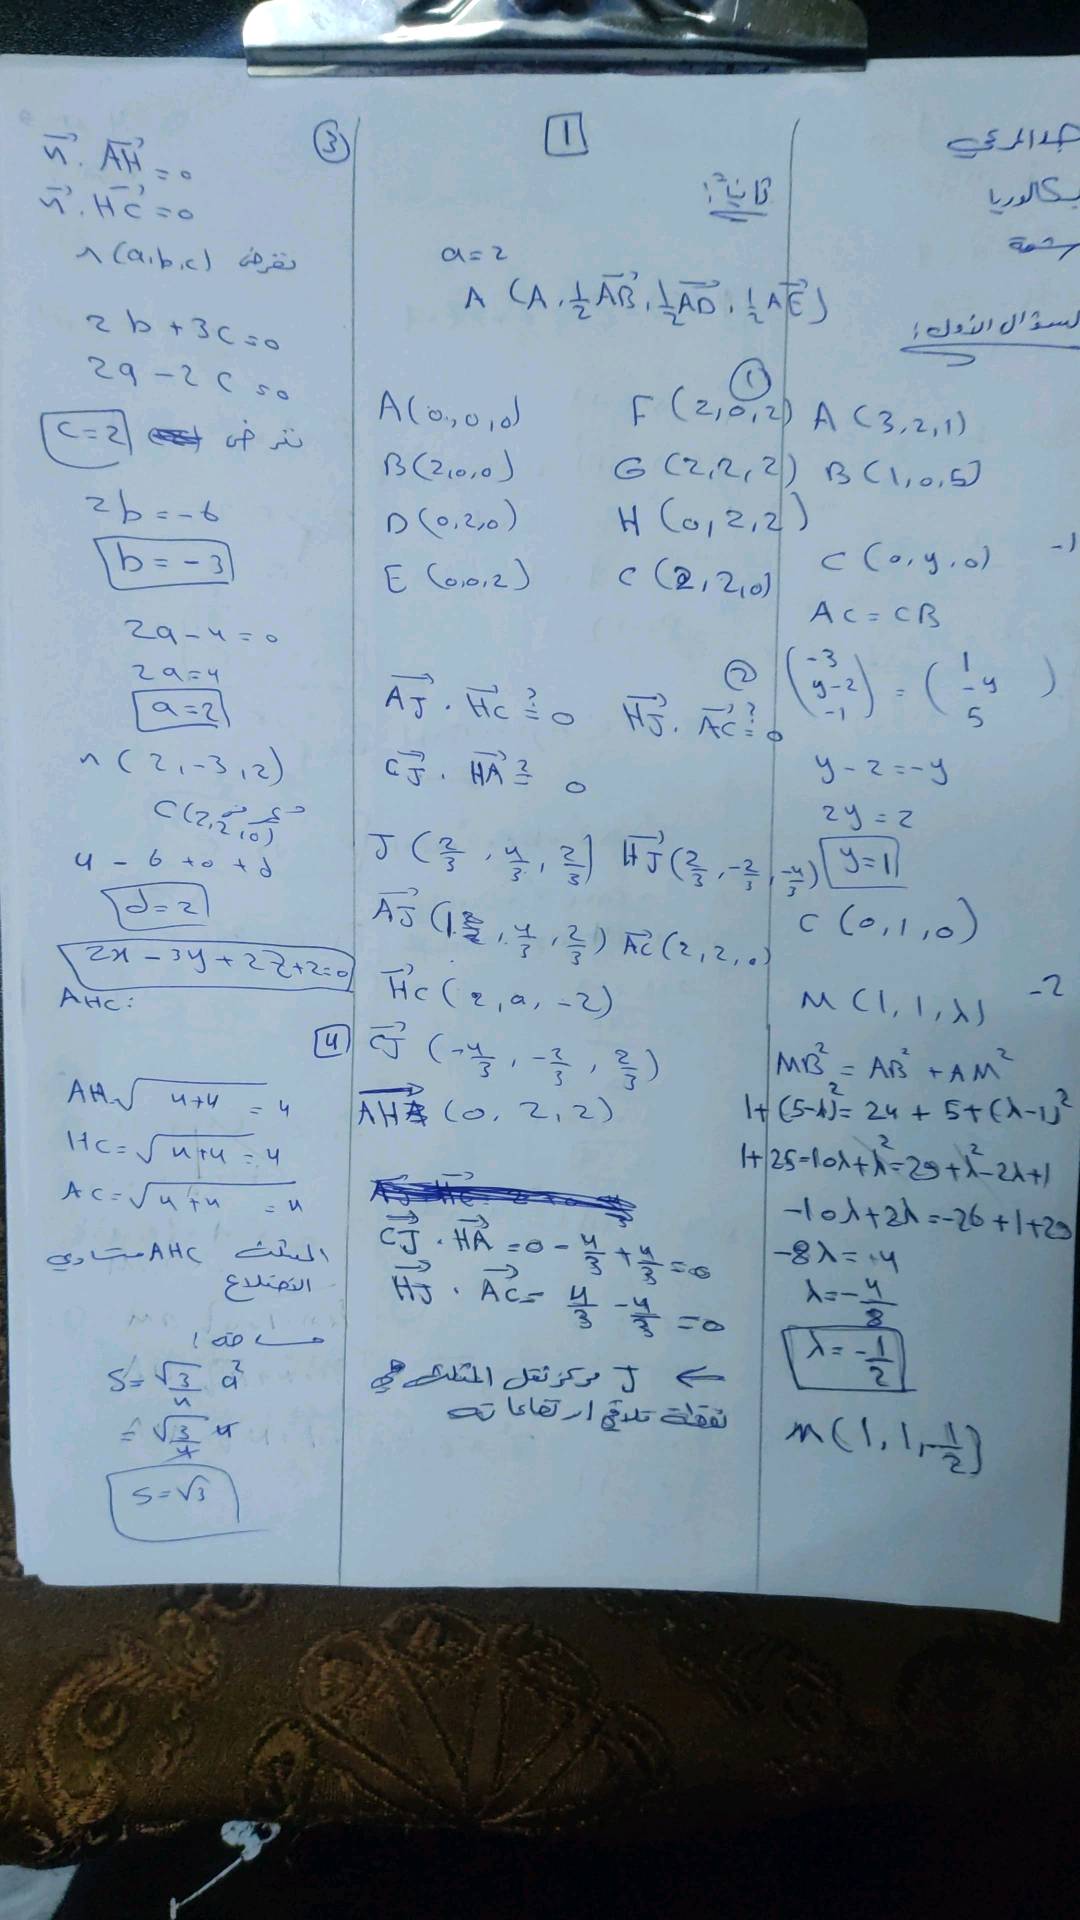 1
بكالوريا
السؤال الأول:
A (3,2,1)
B (1,0,5)
-1
C (0,y,0)
AC = CB
(-3, y-2, -1) = (1, -y, 5)
y - 2 = -y
2y = 2
y = 1
C (0,1,0)
-2
M (1,1,λ)
MB² = AB² + AM²
1+(5-λ)² = 24 + 5 + (λ-1)²
1+25-10λ+λ² = 29+λ²-2λ+1
-10λ+2λ = -26+1+29
-8λ = 4
λ = -4/8
λ = -1/2
M (1,1,-1/2)
ثانياً:
a = 2
A (A, ½AB→, ½AD→, ½AE→)
①
A (0,0,0) F (2,0,2)
B (2,0,0) G (2,2,2)
D (0,2,0) H (0,2,2)
E (0,0,2) C (2,2,0)
②
AJ→ . HC→ ?= 0 HJ→ . AC→ ?= 0
CJ→ . HA→ ?= 0
J (2/3, 4/3, 2/3) HJ→ (2/3, -2/3, -4/3)
AJ→ ( , 4/3, 2/3) AC→ (2,2,0)
HC→ (2, 0, -2)
CJ→ (-4/3, -2/3, 2/3)
AH→ (0, 2, 2)
CJ→ . HA→ = 0 - 4/3 + 4/3 = 0
HJ→ . AC→ = 4/3 - 4/3 = 0
← J مركز ثقل المثلث
نقطة تلاقي ارتفاعاته
③
n→ . AH→ = 0
n→ . HC→ = 0
نفرض n (a,b,c)
2b + 3c = 0
2a - 2c = 0
نفرض c = 2
2b = -6
b = -3
2a - 4 = 0
2a = 4
a = 2
n (2,-3,2)
C (2,2,0)
4 - 6 + 0 + d
d = 2
2x - 3y + 2z + 2 = 0
AHC:
4
AH = √4+4 = 4
HC = √4+4 = 4
AC = √4+4 = 4
المثلث AHC متساوي
الأضلاع
مساحته:
S = √3/4 a²
= √3/4 4
S = √3